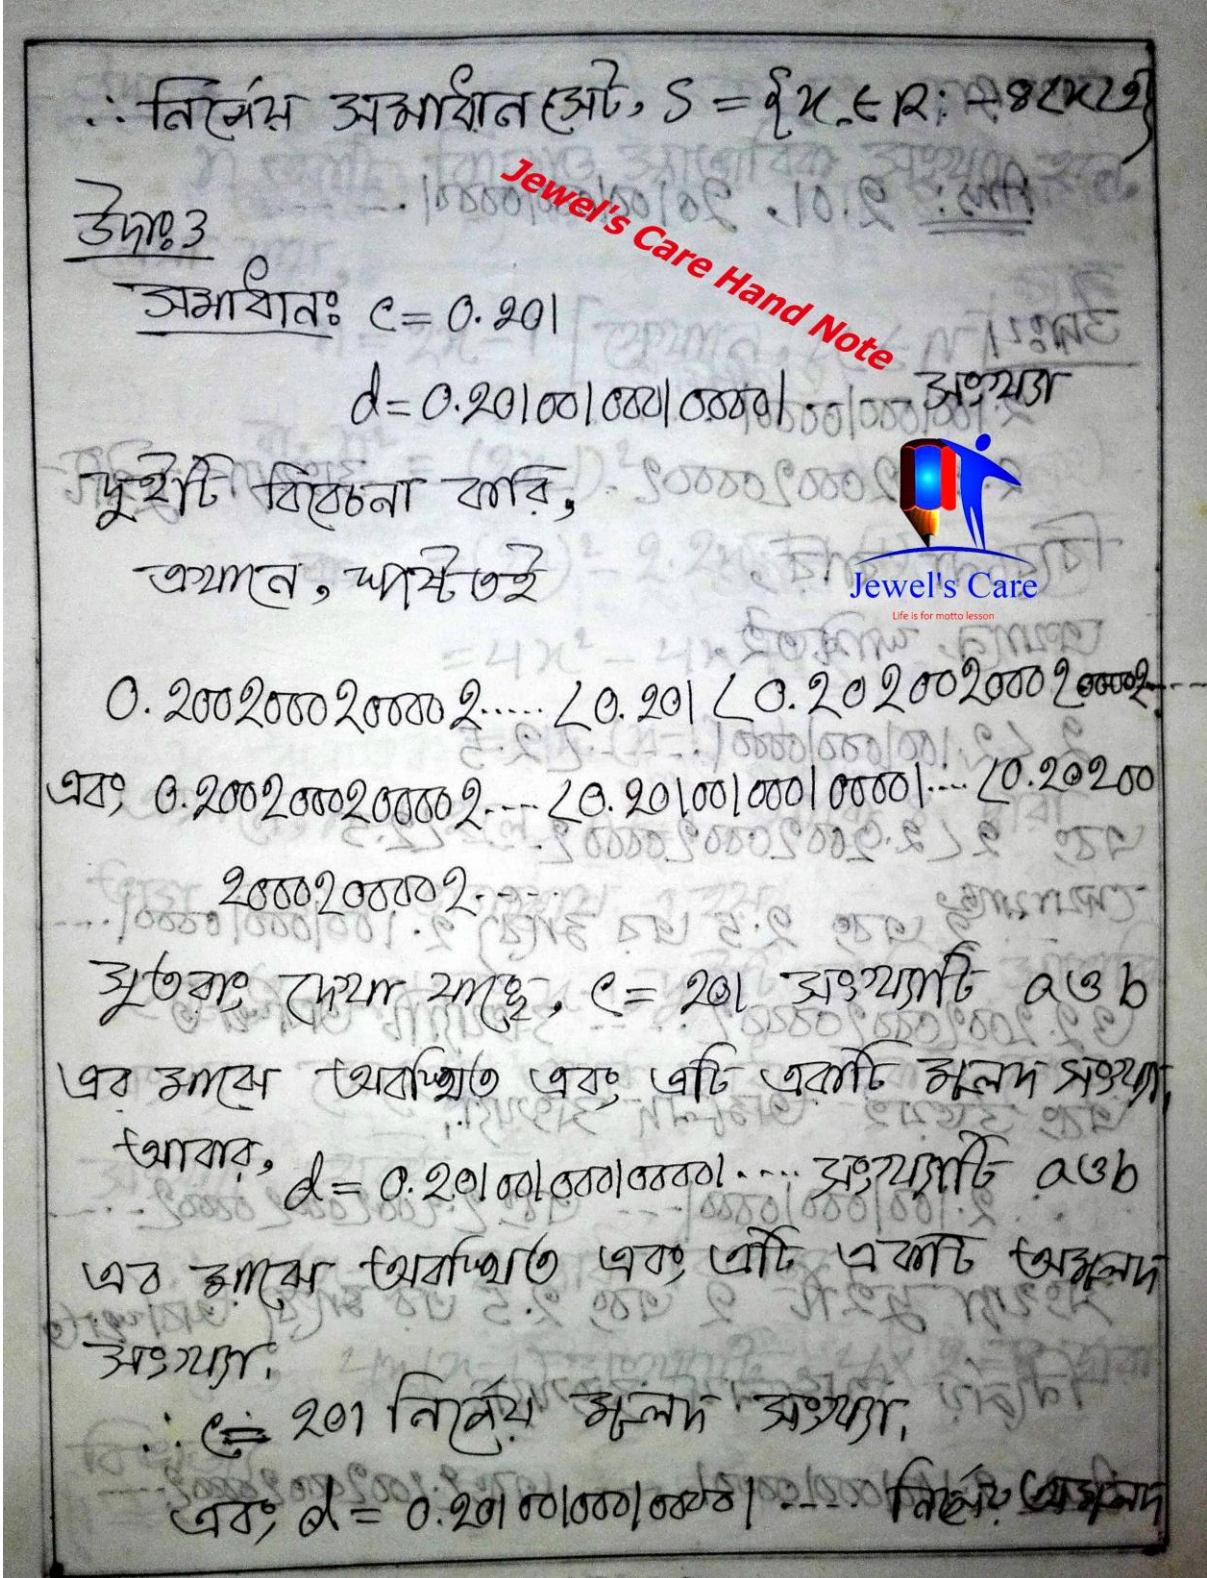 ∴ নির্ণেয় সমাধান সেট, S = {x ∈ R: -8<x<2}
উদাঃ3
সমাধানঃ c = 0.201
Jewel's Care Hand Note
d = 0.201001000100001.... সংখ্যা
দুইটি বিবেচনা করি,
এখানে, স্পষ্টতই
Jewel's Care
Life is for motto lesson
0.2002000200002..... < 0.201 < 0.202002000200002.....
এবং 0.2002000200002.... < 0.201001000100001.... < 0.20200
2000200002.....
সুতরাং দেখা যাচ্ছে, c = 201 সংখ্যাটি a ও b
এর মাঝে অবস্থিত এবং এটি একটি মূলদ সংখ্যা,
আবার, d = 0.201001000100001..... সংখ্যাটি a ও b
এর মাঝে অবস্থিত এবং এটি একটি অমূলদ
সংখ্যা.
∴ c = 201 নির্ণেয় মূলদ সংখ্যা,
এবং d = 0.201001000100001 ..... নির্ণেয় অমূলদ